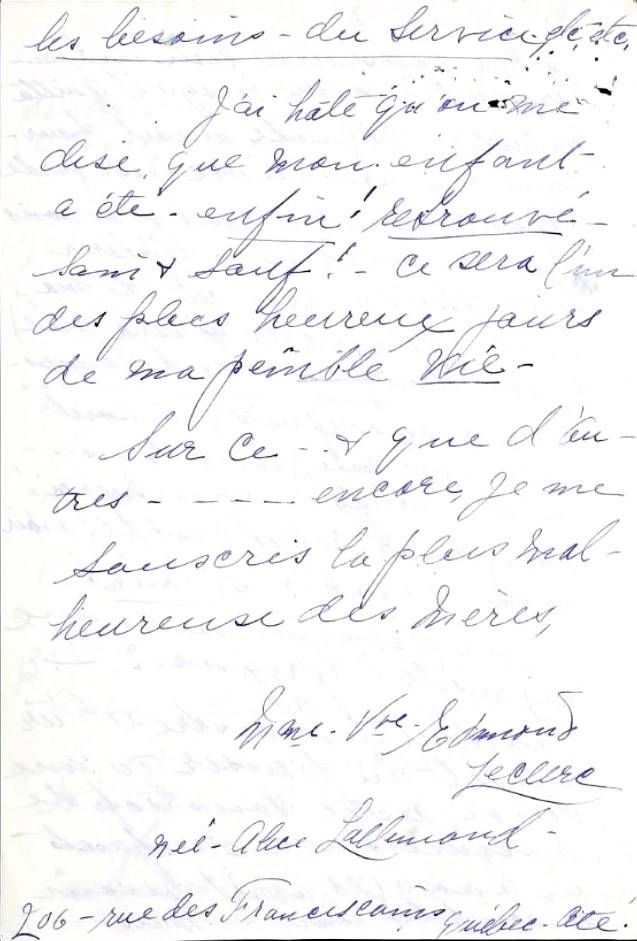 les besoins - du Service, etc, etc,
J'ai hâte qu'on me
dise, que mon enfant -
a été - enfin! retrouvé -
sain & sauf! - ce sera l'un
des plus heureux jours
de ma pénible vie -
Sur ce - - & que d'au-
tres - - - - - encore, je me
souscris la plus mal-
heureuse des mères,
Mme. Vve. Edmond
Leclerc
née - Alice Lallemand -
206 - rue des Franciscains, Québec - Cité.